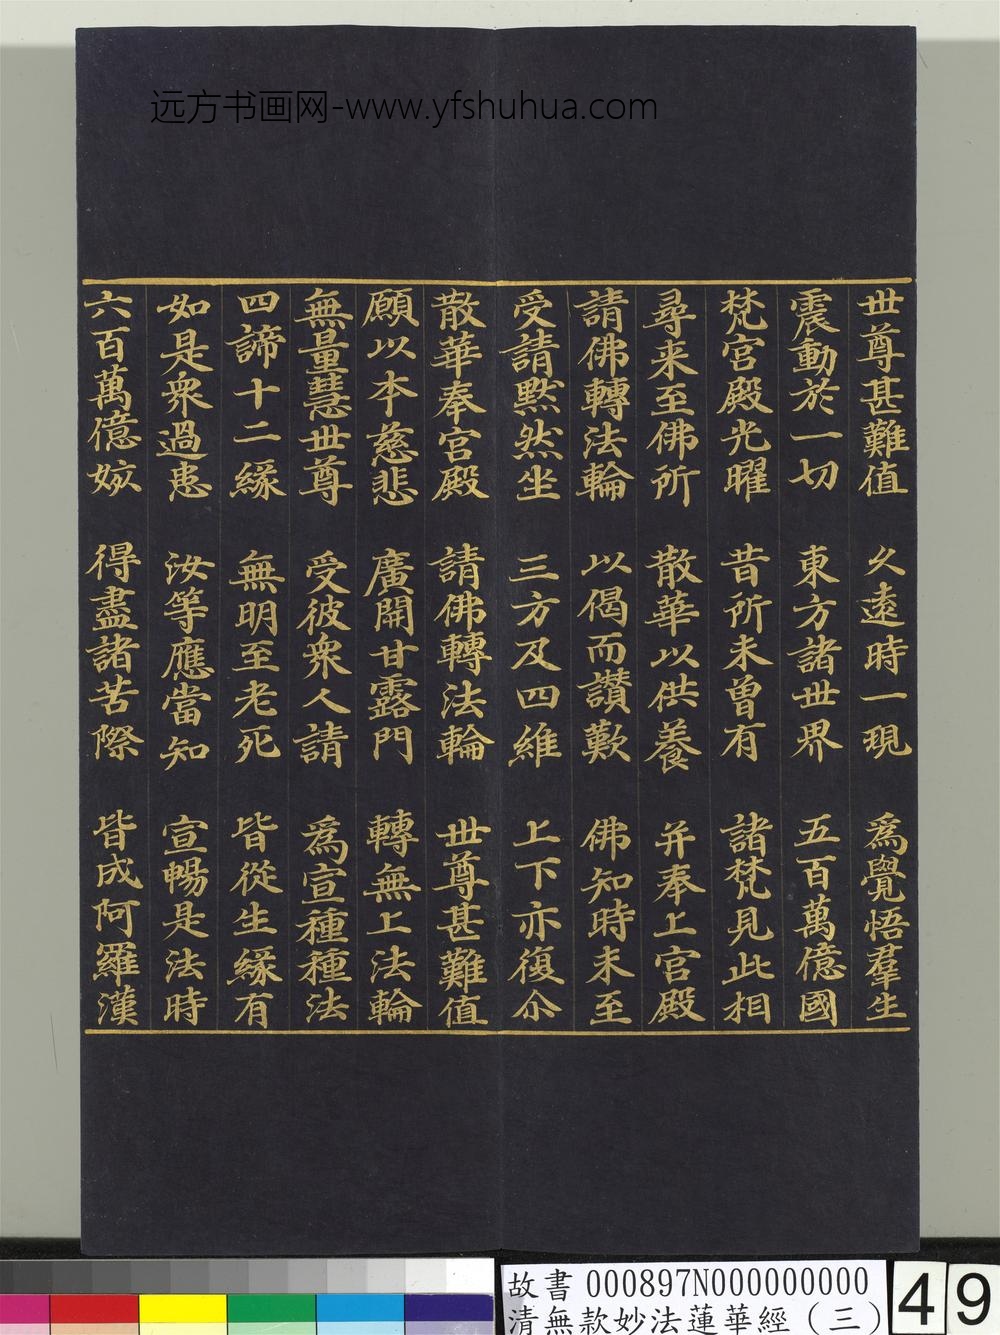 远方书画网-www.yfshuhua.com
世尊甚難值 久遠時一現 爲覺悟羣生
震動於一切 東方諸世界 五百萬億國
梵宮殿光曜 昔所未曾有 諸梵見此相
尋來至佛所 散華以供養 并奉上宮殿
請佛轉法輪 以偈而讚歎 佛知時未至
受請默然坐 三方及四維 上下亦復尒
散華奉宮殿 請佛轉法輪 世尊甚難值
願以本慈悲 廣開甘露門 轉無上法輪
無量慧世尊 受彼衆人請 爲宣種種法
四諦十二緣 無明至老死 皆從生緣有
如是衆過患 汝等應當知 宣暢是法時
六百萬億姟 得盡諸苦際 皆成阿羅漢
故書 000897N000000000
清無款妙法蓮華經（三）
49